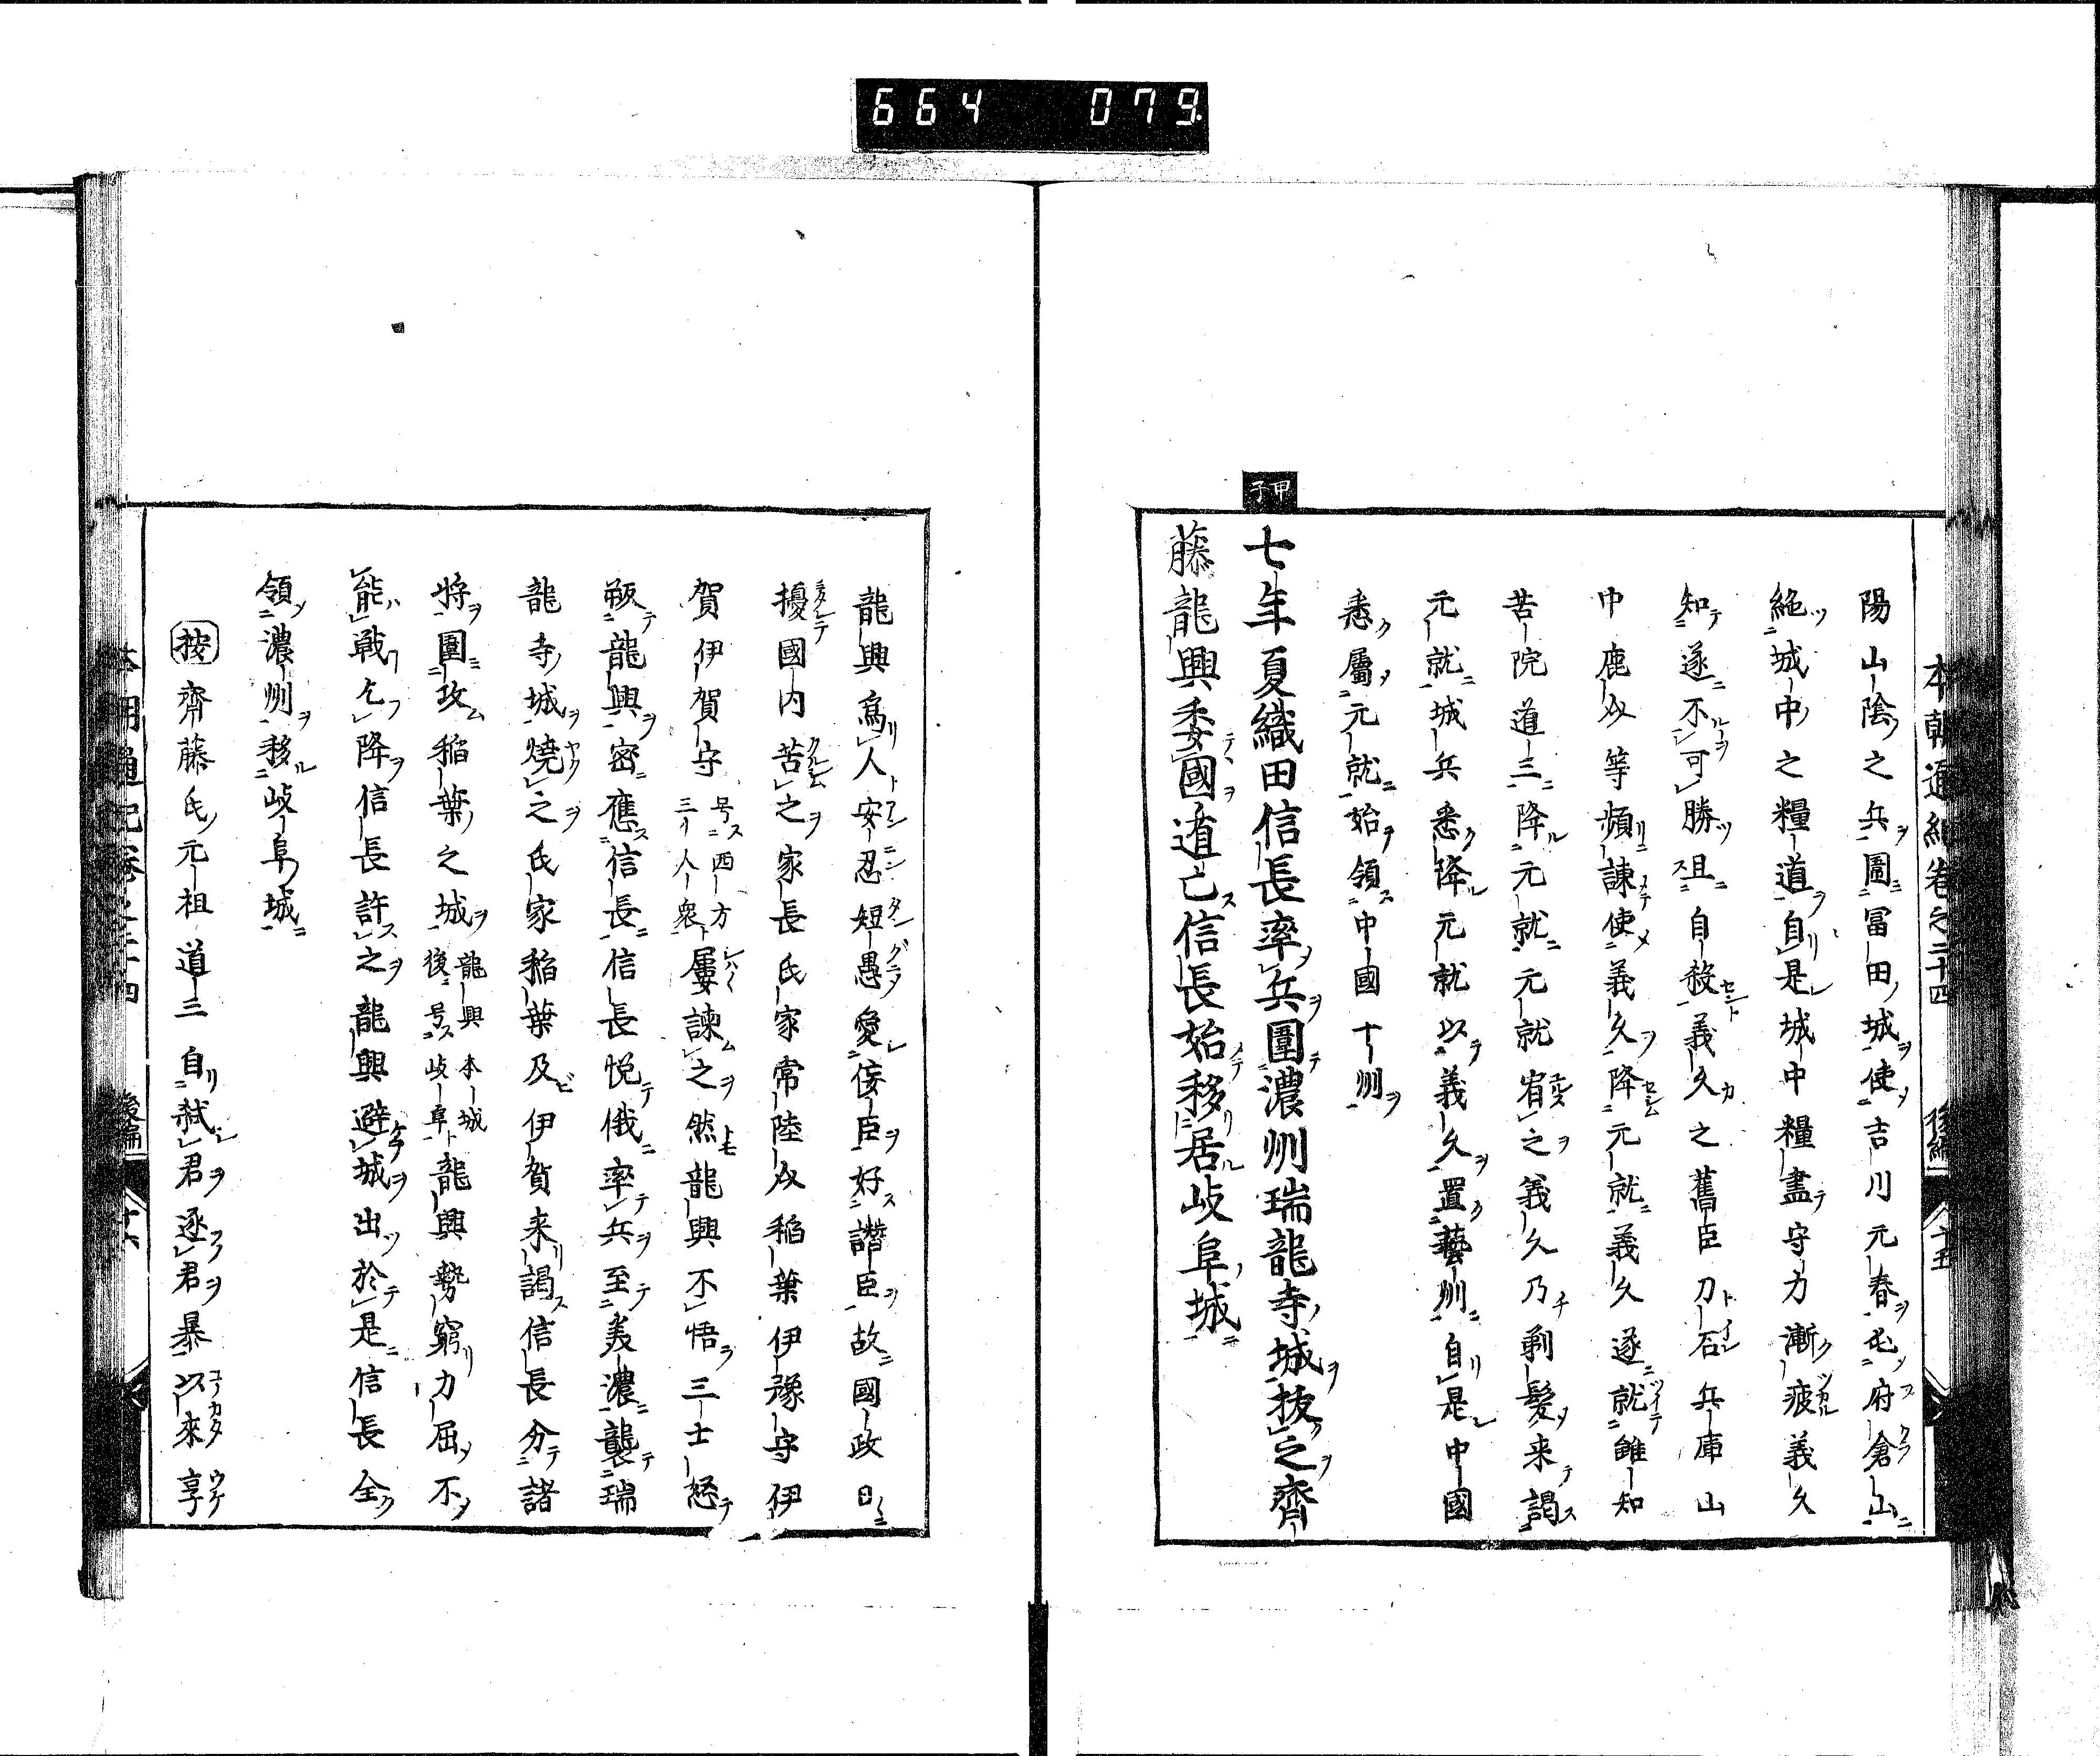 664 079
本朝通紀卷之二十四 後編 十五
陽山陰之兵圍冨田城使吉川元春屯府倉山
絶城中之糧道自是城中糧盡守力漸疲義久
知遂不可勝且自殺義久之舊臣刀石兵庫山
中鹿之等頻諫使義久降元就義久遂就雖知
苦院道三降元就元就宥之義久乃剃髮来謁
元就城兵悉降元就以義久置藝州自是中國
悉屬元就始領中國十州
甲子
七年夏織田信長率兵圍濃州瑞龍寺城拔之齊
藤龍興委國遁亡信長始移居岐阜城
龍興爲人安忍短愚愛侫臣好讒臣故國政日
擾國内苦之家長氏家常陸介稲葉伊豫守伊
賀伊賀守号西方三人衆屢諫之然龍興不悟三士怒
叛龍興密應信長信長悦俄率兵至美濃襲瑞
龍寺城燒之氏家稲葉及伊賀来謁信長分諸
將圍攻稲葉之城龍興本城後号岐阜龍興勢窮力屈不
能戰乞降信長許之龍興避城出於是信長全
領濃州移岐阜城
按 齊藤氏元祖道三自弑君逐君暴以來享
本朝通紀卷之二十四 後編 十六